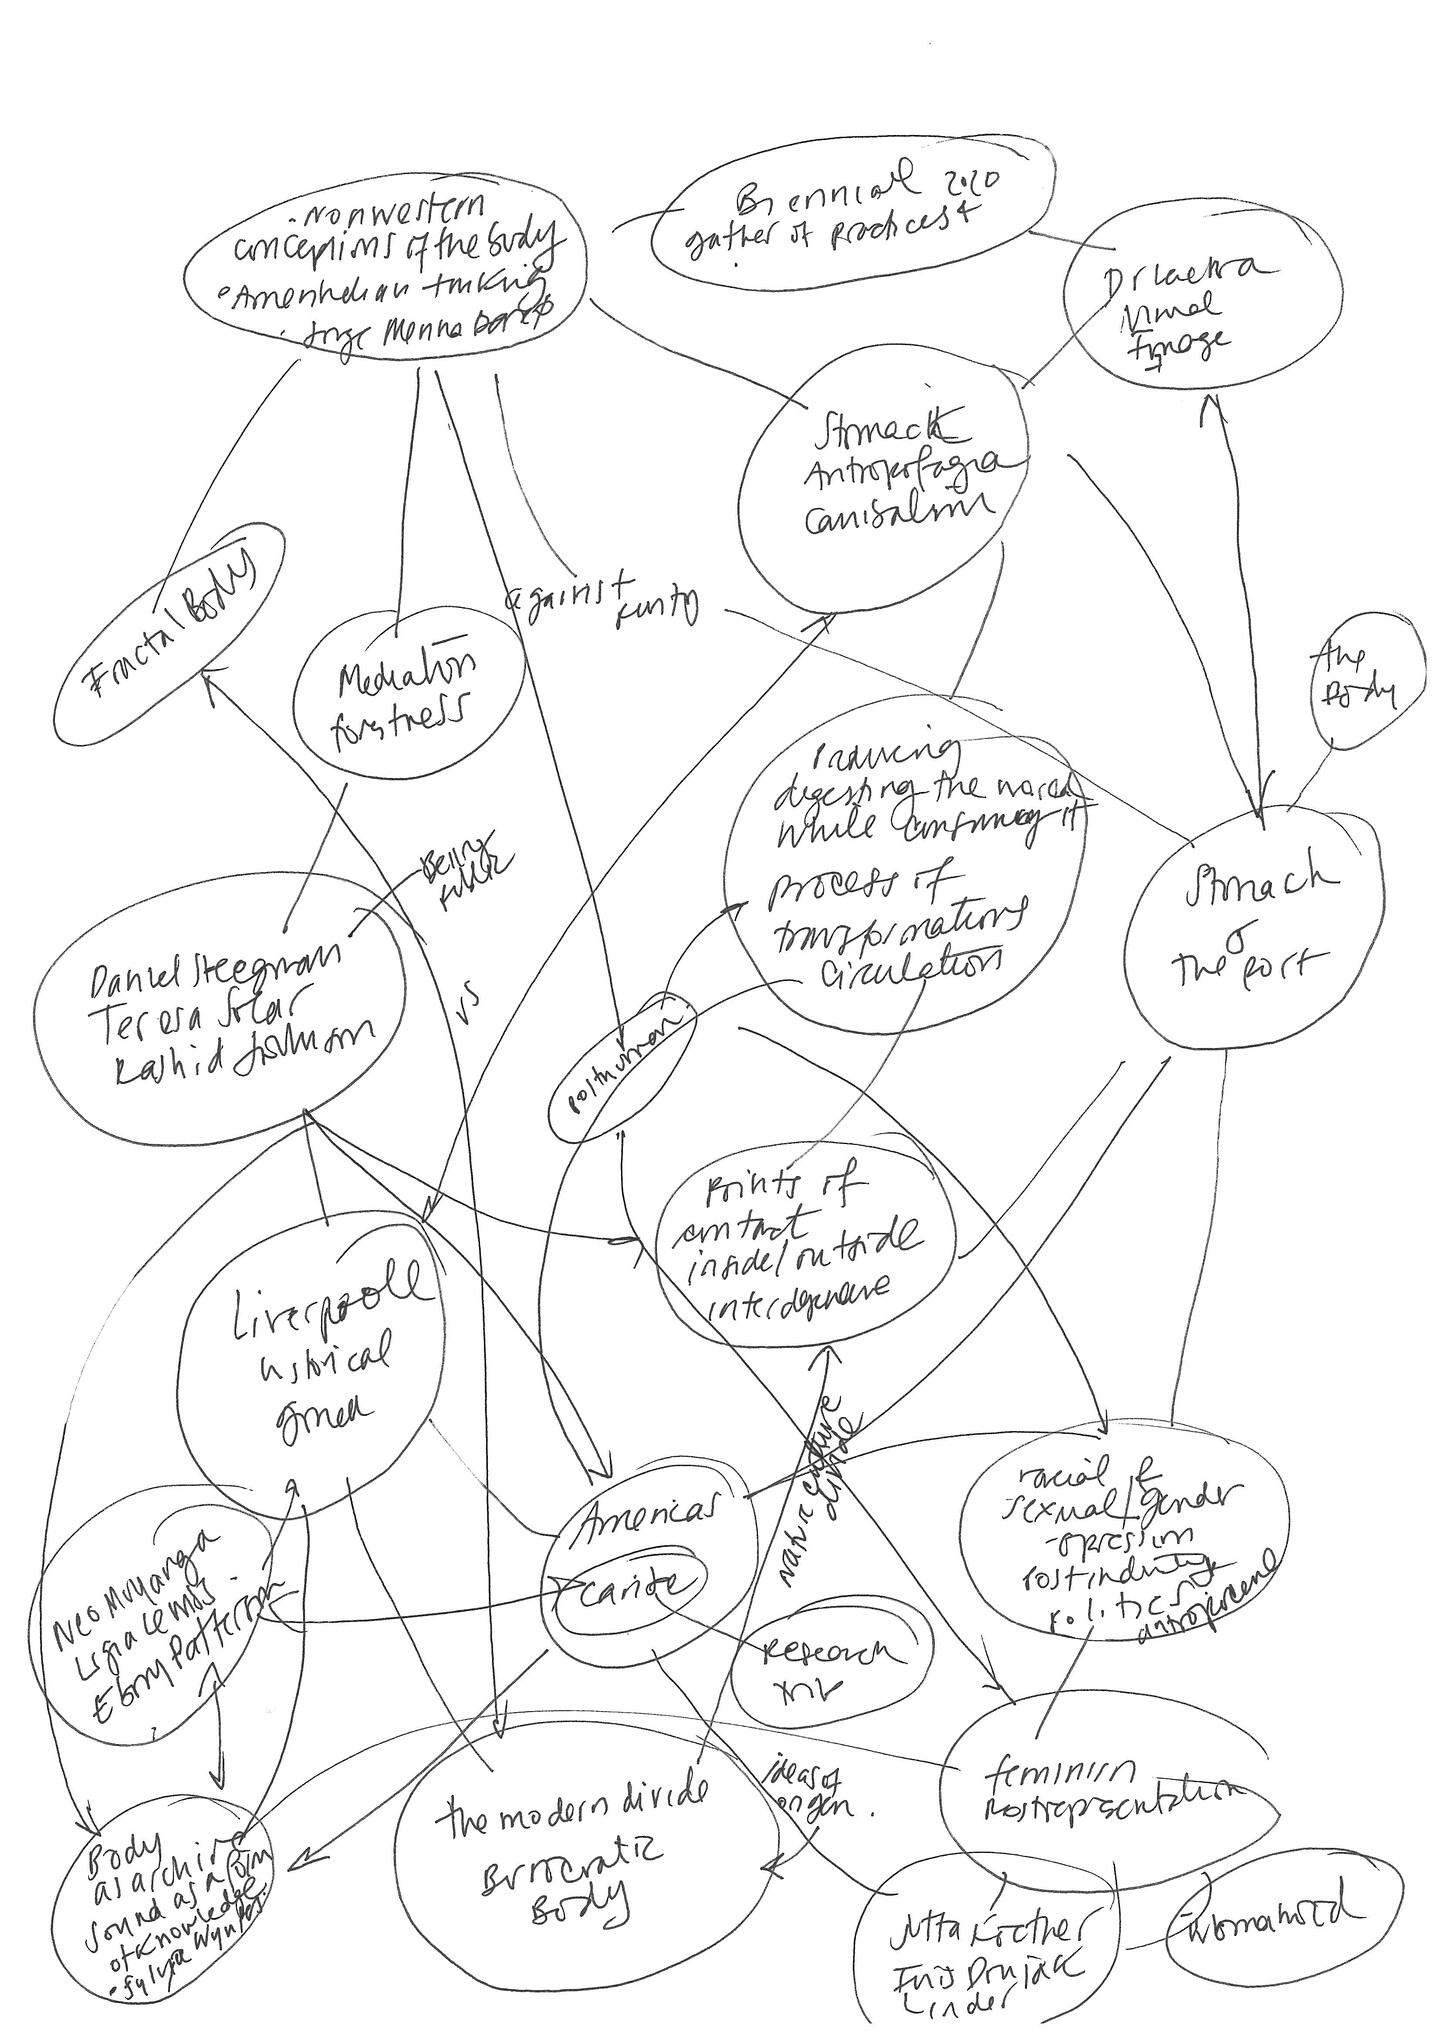 Biennial 2020
gather of practices +
• Nonwestern
conceptions of the body
• Amerindian thinking
• Jorge Menna Barreto
Dr Lakra
Image
Stomach
Antropofagia
Canibalism
Fractal Body
against
purity
Mediation
forstress
The
Body
Producing
digesting the world
while consuming it
process of
transformations
circulation
Being
public
Stomach
&
the port
Daniel Steegman
Teresa Solar
Rashid Johnson
vs
Posthuman
Points of
contact
inside/outside
Liverpoole
historical
Nature culture
divide
Americas
caribe
racial &
sexual/gender
opression
postindustry
politics
antropocene
Neo Muyanga
Ligia Lewis
Ebony Patterson
Research
feminism
Postrepresentation
ideas of
the modern divide
Burocratic
Body
Body
as archive
sound as a form
of knowledge
• Sylvia Wynter
Jutta Koether
Inis Doujak
Linder
Womanhood